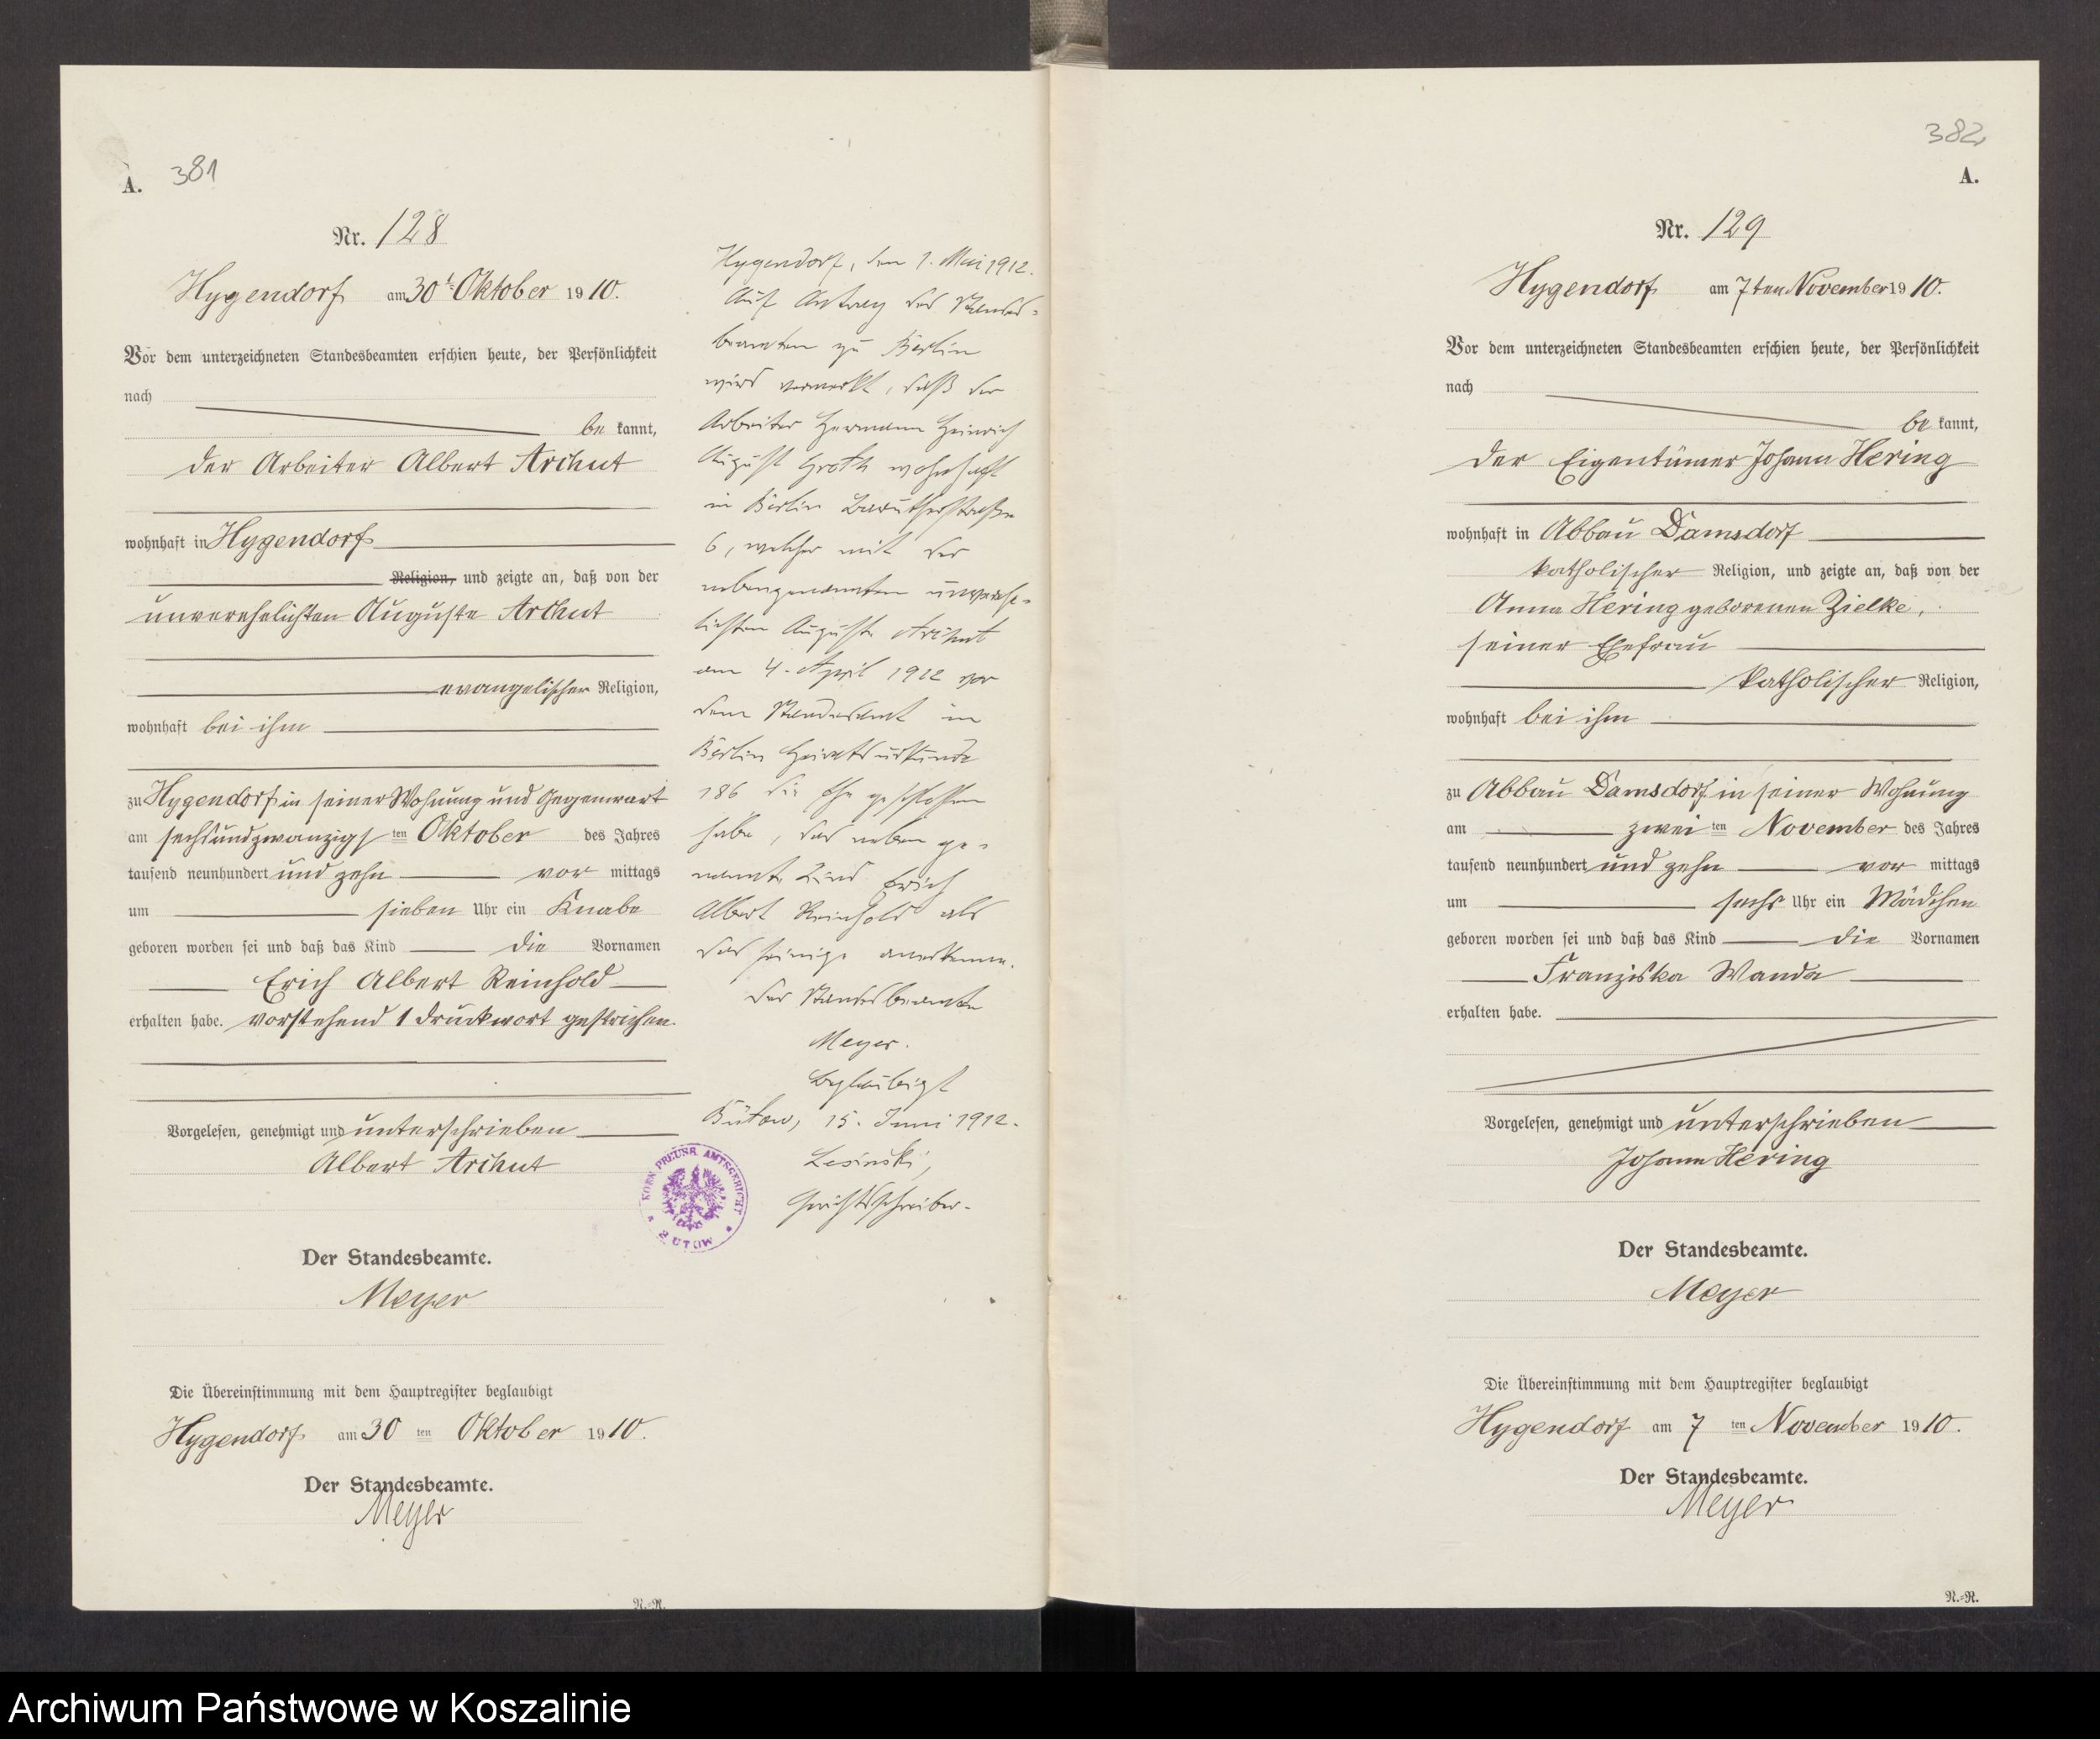 A. 381
Nr. 128
Hygendorf am 30t Oktober 1910.
Vor dem unterzeichneten Standesbeamten erschien heute, der Persönlichkeit
nach
be kannt,
der Arbeiter Albert Archut
wohnhaft in Hygendorf
Religion, und zeigte an, daß von der
unverehelichten Auguste Archut
evangelischer Religion,
wohnhaft bei ihm
zu Hygendorf in seiner Wohnung und Gegenwart
am sechsundzwanzigsten Oktober des Jahres
tausend neunhundert und zehn vor mittags
um sieben Uhr ein Knabe
geboren worden sei und daß das Kind die Vornamen
Erich Albert Reinhold
erhalten habe. Vorstehend 1 Druckwort gestrichen.
Vorgelesen, genehmigt und unterschrieben
Albert Archut
Der Standesbeamte.
Meyer
Die Übereinstimmung mit dem Hauptregister beglaubigt
Hygendorf am 30 ten Oktober 1910.
Der Standesbeamte.
Meyer
N.-R.
Hygendorf, den 1. Mai 1912.
Auf Antrag des Standes-
beamten zu Berlin
wird vermerkt, daß der
Arbeiter Hermann Heinrich
August Groth wohnhaft
in Berlin Baruther straße
6, welcher mit der
nebengenannten unverehe-
lichten Auguste Archut
am 4. April 1912 vor
dem Standesamt in
Berlin Heiratsurkunde
186 die Ehe geschlossen
habe, das neben ge-
nannte Kind Erich
Albert Reinhold als
das seinige anerkenne.
Der Standesbeamte
Meyer.
Beglaubigt
Bütow, 15. Juni 1912.
Lesinski,
Gerichtsschreiber.
KÖN. PREUSS. AMTSGERICHT
BÜTOW
382
A.
Nr. 129
Hygendorf am 7ten November 1910.
Vor dem unterzeichneten Standesbeamten erschien heute, der Persönlichkeit
nach
be kannt,
der Eigentümer Johann Hering
wohnhaft in Abbau Damsdorf
katholischer Religion, und zeigte an, daß von der
Anna Hering geborenen Zielke,
seiner Ehefrau
katholischer Religion,
wohnhaft bei ihm
zu Abbau Damsdorf in seiner Wohnung
am zwei ten November des Jahres
tausend neunhundert und zehn vor mittags
um sechs Uhr ein Mädchen
geboren worden sei und daß das Kind die Vornamen
Franziska Wanda
erhalten habe.
Vorgelesen, genehmigt und unterschrieben
Johann Hering
Der Standesbeamte.
Meyer
Die Übereinstimmung mit dem Hauptregister beglaubigt
Hygendorf am 7 ten November 1910.
Der Standesbeamte.
Meyer
N.-R.
Archiwum Państwowe w Koszalinie